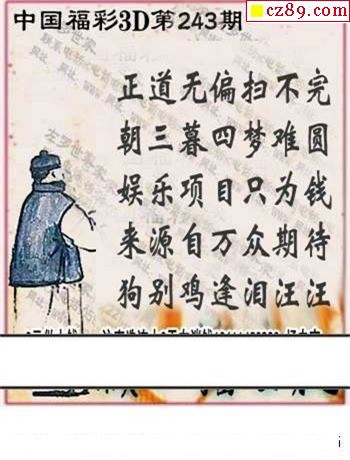 cz89.com
中国福彩3D第243期
正道无偏扫不完
朝三暮四梦难圆
娱乐项目只为钱
来源自万众期待
狗别鸡逢泪汪汪
i